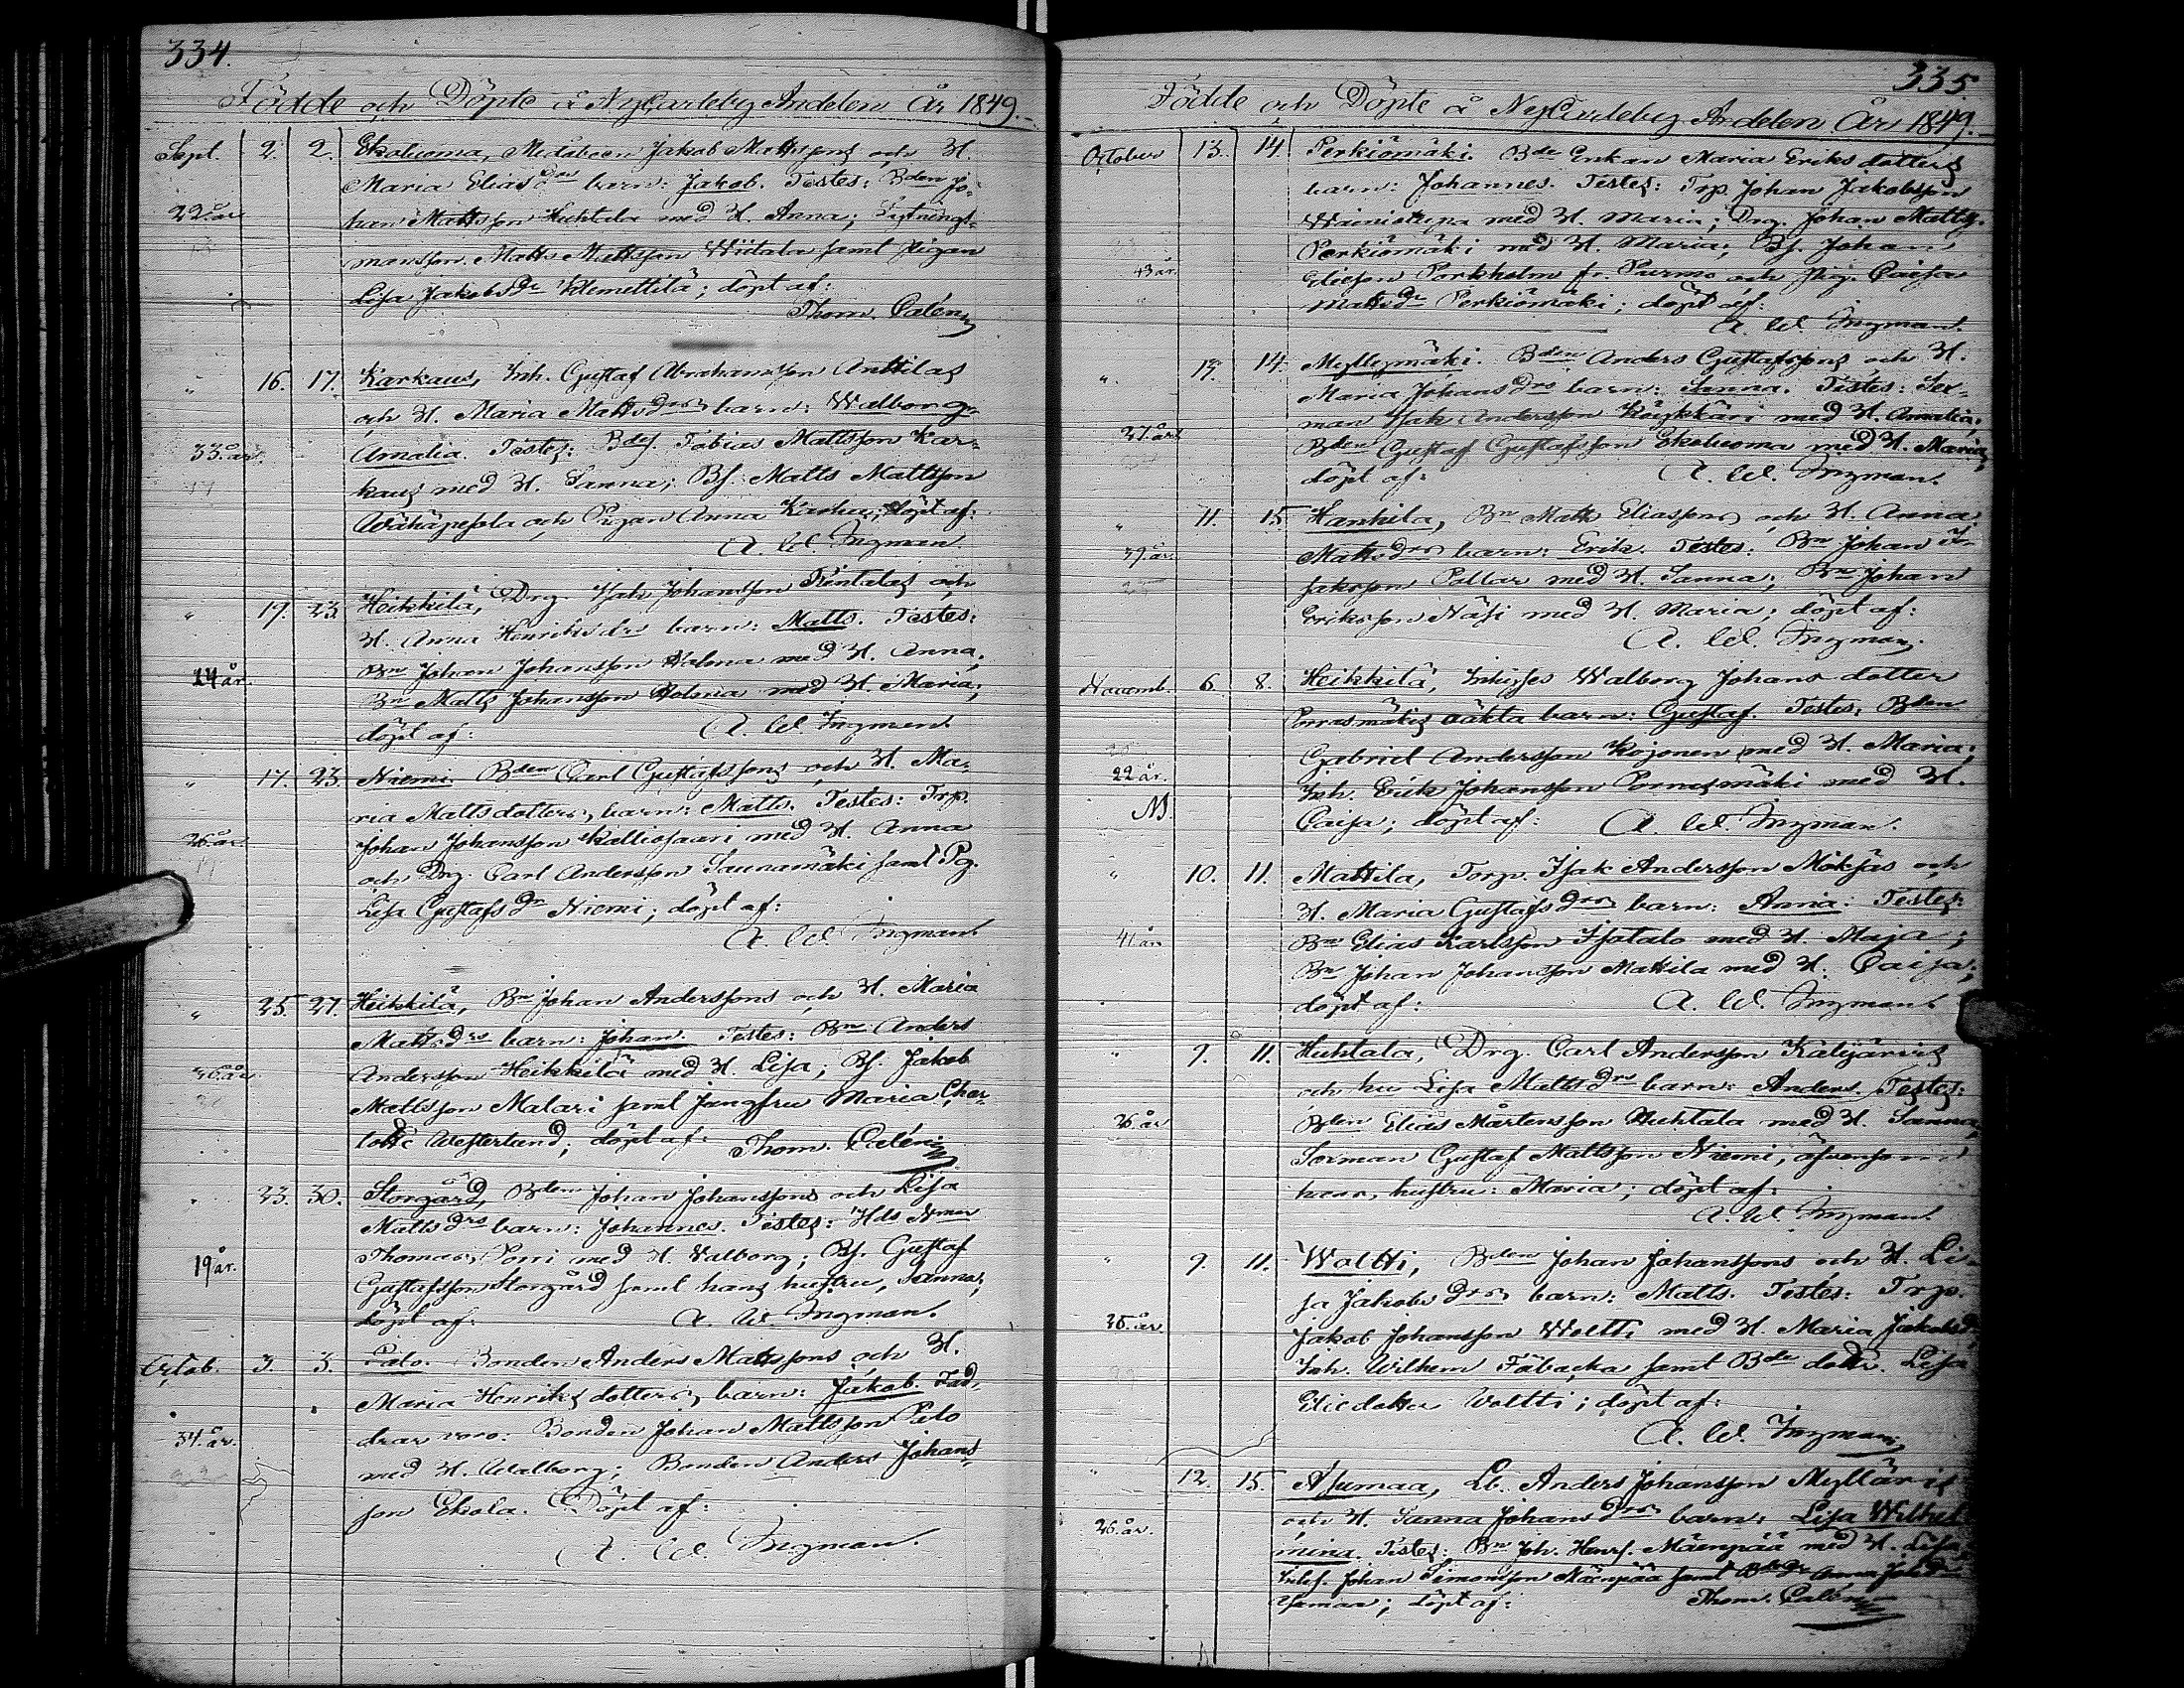 334.
Födde och Döpte å NyCarleby Andelen År 1849.
Sept. 2. 2. Ekoluoma, Jakob Mattssons och H.
Maria Elias drs barn: Jakob. Testes: Bden Jo-
22 år han Mattsson Huhtala med H. Anna;
mansson Matts Mattsson Wiitala samt Pigan
Lisa Jakobsdr Klemettilä; döpt af:
Thom. Calén
" 16. 17. Karkaus, Inh. Gustaf Abrahamsson Anttilas
och H. Maria Mattsdrs barn: Walborg
33 år. Amalia. Testes: Tobias Mattsson Kar-
kaus med H. Sanna; Bs. Matts Mattsson
Wähäpesola och Pigan Anna döpt af:
A. W. Ingman.
" 19. 23. Heikkilä, Drg. Isak Johansson och
H. Anna Henriksdrs barn: Matts. Testes:
Bn Johan Johansson med H. Anna,
24 år. Bn Matts Johansson med H. Maria;
döpt af: A. W. Ingman
" 17. 23. Niemi. Bden Carl Gustafssons och H. Ma-
ria Mattsdotters barn: Matts. Testes: Trp.
26 år Johan Johansson Kalliosaari med H. Anna
och Drg. Carl Andersson Saunamäki samt Pg.
Lisa Gustafsdr Niemi; döpt af:
A. W. Ingman.
" 25. 27. Heikkilä, Bn Johan Anderssons och H. Maria
Mattsdrs barn: Johan. Testes: Bn Anders
Andersson Heikkilä med H. Lisa; Bs. Jakob
Mattsson Malari samt Jungfru Maria Char-
lotte Westerlund; döpt af: Thom. Calén
" 23. 30. Storgård, Bden Johan Johanssons och Lisa
Mattsdrs barn: Johannes. Testes:
19 år. Thomas Porri med H. Walborg; Bs. Gustaf
Gustafsson Storgård samt hans hustru, Sanna;
döpt af: A. W. Ingman.
Octob. 3. 3. Palo. Bonden Anders Mattssons och H.
Maria Henriksdotters barn: Jakob. Fad-
drar voro: Bonden Johan Mattsson Palo
34 år. med H. Walborg; Bonden Anders Johans-
son Ekola. Döpt af:
A. W. Ingman.
335.
Födde och Döpte å NyCarleby Andelen År 1849.
October 13. 14. Perkiömäki. Bde Enkan Maria Eriksdotters
barn: Johannes. Testes: Trp. Johan Jakobsson
Wainiotupa med H. Maria; Drg. Johan Matts.
43 år. Perkiömäki med H. Maria; Bs. Johan
Eliesson Forsholm fr. Purmo och Pig. Caisa
Mattsdr Perkiömäki; döpt af:
A. W. Ingman.
". 14. Myllymäki. Bden Anders Gustafssons och H.
Maria Johansdrs barn: Sanna. Testes: Sex-
man Isak Andersson Köykkäri med H. Amalia;
27 år Bden Gustaf Gustafsson Ekoluoma med H. Maria,
döpt af: A. W. Ingman.
" 11. 15 Hanhila, Bn Matts Eliassons och H. Anna
39 år. Mattsdrs barn: Erik. Testes: Bn Johan I-
saksson Pollar med H. Sanna; Bn Johan
Eriksson Näsi med H. Maria; döpt af:
A. W. Ingman.
Novemb. 6. 8. Heikkilä, Walborg Johansdotter
Pornasmäkis oäkta barn: Gustaf. Testes: Bden
Gabriel Andersson Kojonen med H. Maria;
22 år. Inh. Erik Johansson Pornasmäki med H.
Caisa; döpt af: A. W. Ingman.
" 10. 11. Mattila, Torp. Isak Andersson och
H. Maria Gustafsdrs barn: Anna: Testes:
41 år. Bn Elias Karlsson Isotalo med H. Maja;
Bn Johan Johansson Mattila med H. Caisa;
döpt af: A. W. Ingman.
" 9. 11. Huhtala, Drg. Carl Andersson Katijärvis
och hu Lisa Mattsdrs barn: Anders. Testes:
26 år Bden Elias Mårtensson Huhtala med H. Sanna,
Sexman Gustaf Mattsson Niemi, äfvensom
hans hustru: Maria; döpt af:
A. W. Ingman.
" 9. 11. Woltti, Bden Johan Johanssons och H. Li-
sa Jakobsdrs barn: Matts. Testes: Trp.
35 år. Jakob Johansson Woltti med H. Maria Jakobsdr,
Inh. Wilhem Fäbacka samt Bde dottr. Lisa
Eliedotter Woltti; döpt af:
A. W. Ingman
" 12. 15. Asumaa, Lb. Anders Johansson Mylläris
26 år. och H. Sanna Johansdrs barn: Lisa Wilhel-
mina. Testes: Bn Joh. Henrs. Mäenpää med H. Lisa,
Johan Simonsson Mäenpää samt Anna
Asumaa; döpt af: Thom. Calén